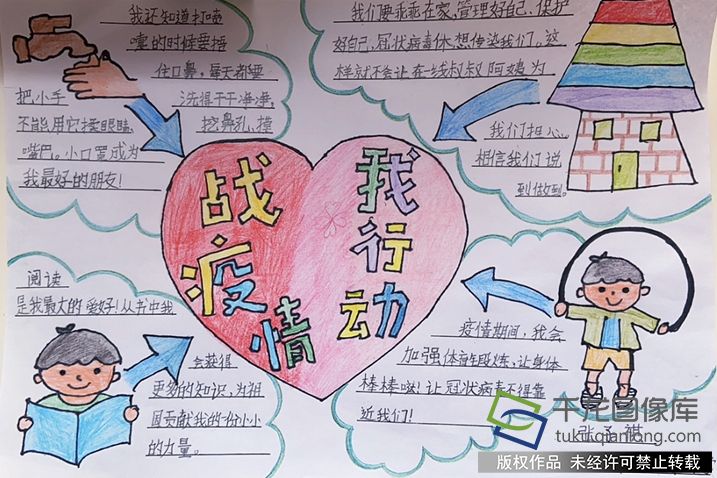 我还知道打喷
嚏的时候要捂
住口鼻，每天都要
把小手
洗得干干净净，
不能用它揉眼睛、
挖鼻孔、摸
嘴巴。小口罩成为
我最好的朋友！
我们要乖乖在家，管理好自己，保护
好自己，冠状病毒休想传染我们。这
样就不会让在一线叔叔阿姨为
我们担心，
相信我们说
到做到。
战疫情
我行动
阅读
是我最大的爱好！从书中我
会获得
更多的知识，为祖
国贡献我的一份小小
的力量。
疫情期间，我会
加强体育锻炼，让身体
棒棒哒！让冠状病毒不得靠
近我们！
千龙图像库
tuku.qianlong.com
版权作品 未经许可禁止转载